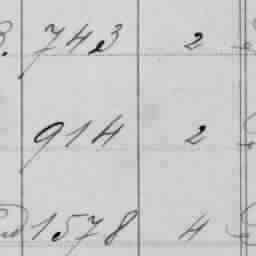 743 2
914 2
1578 4